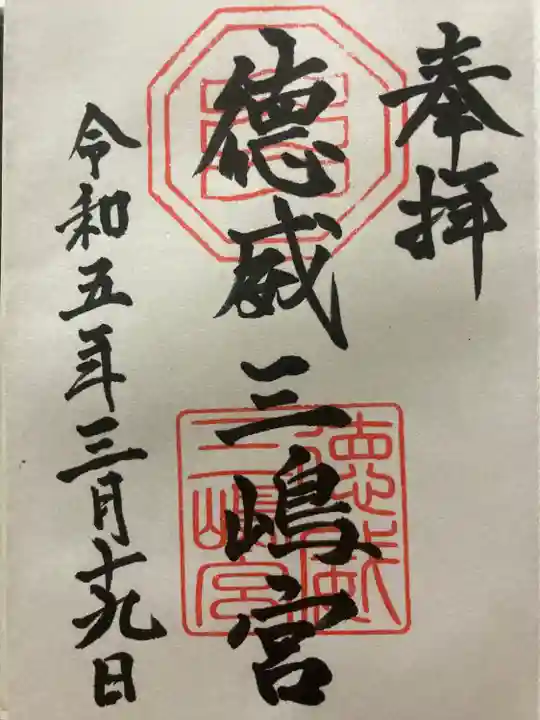 奉拝
徳威三嶋宮
令和五年三月十九日
徳威
三嶋宮